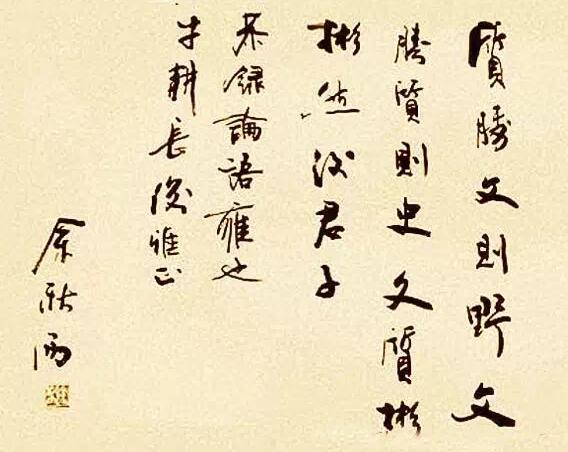 質勝文則野文
勝質則史文質彬
彬然後君子
恭錄論語雍也
耕長雅正
余秋雨